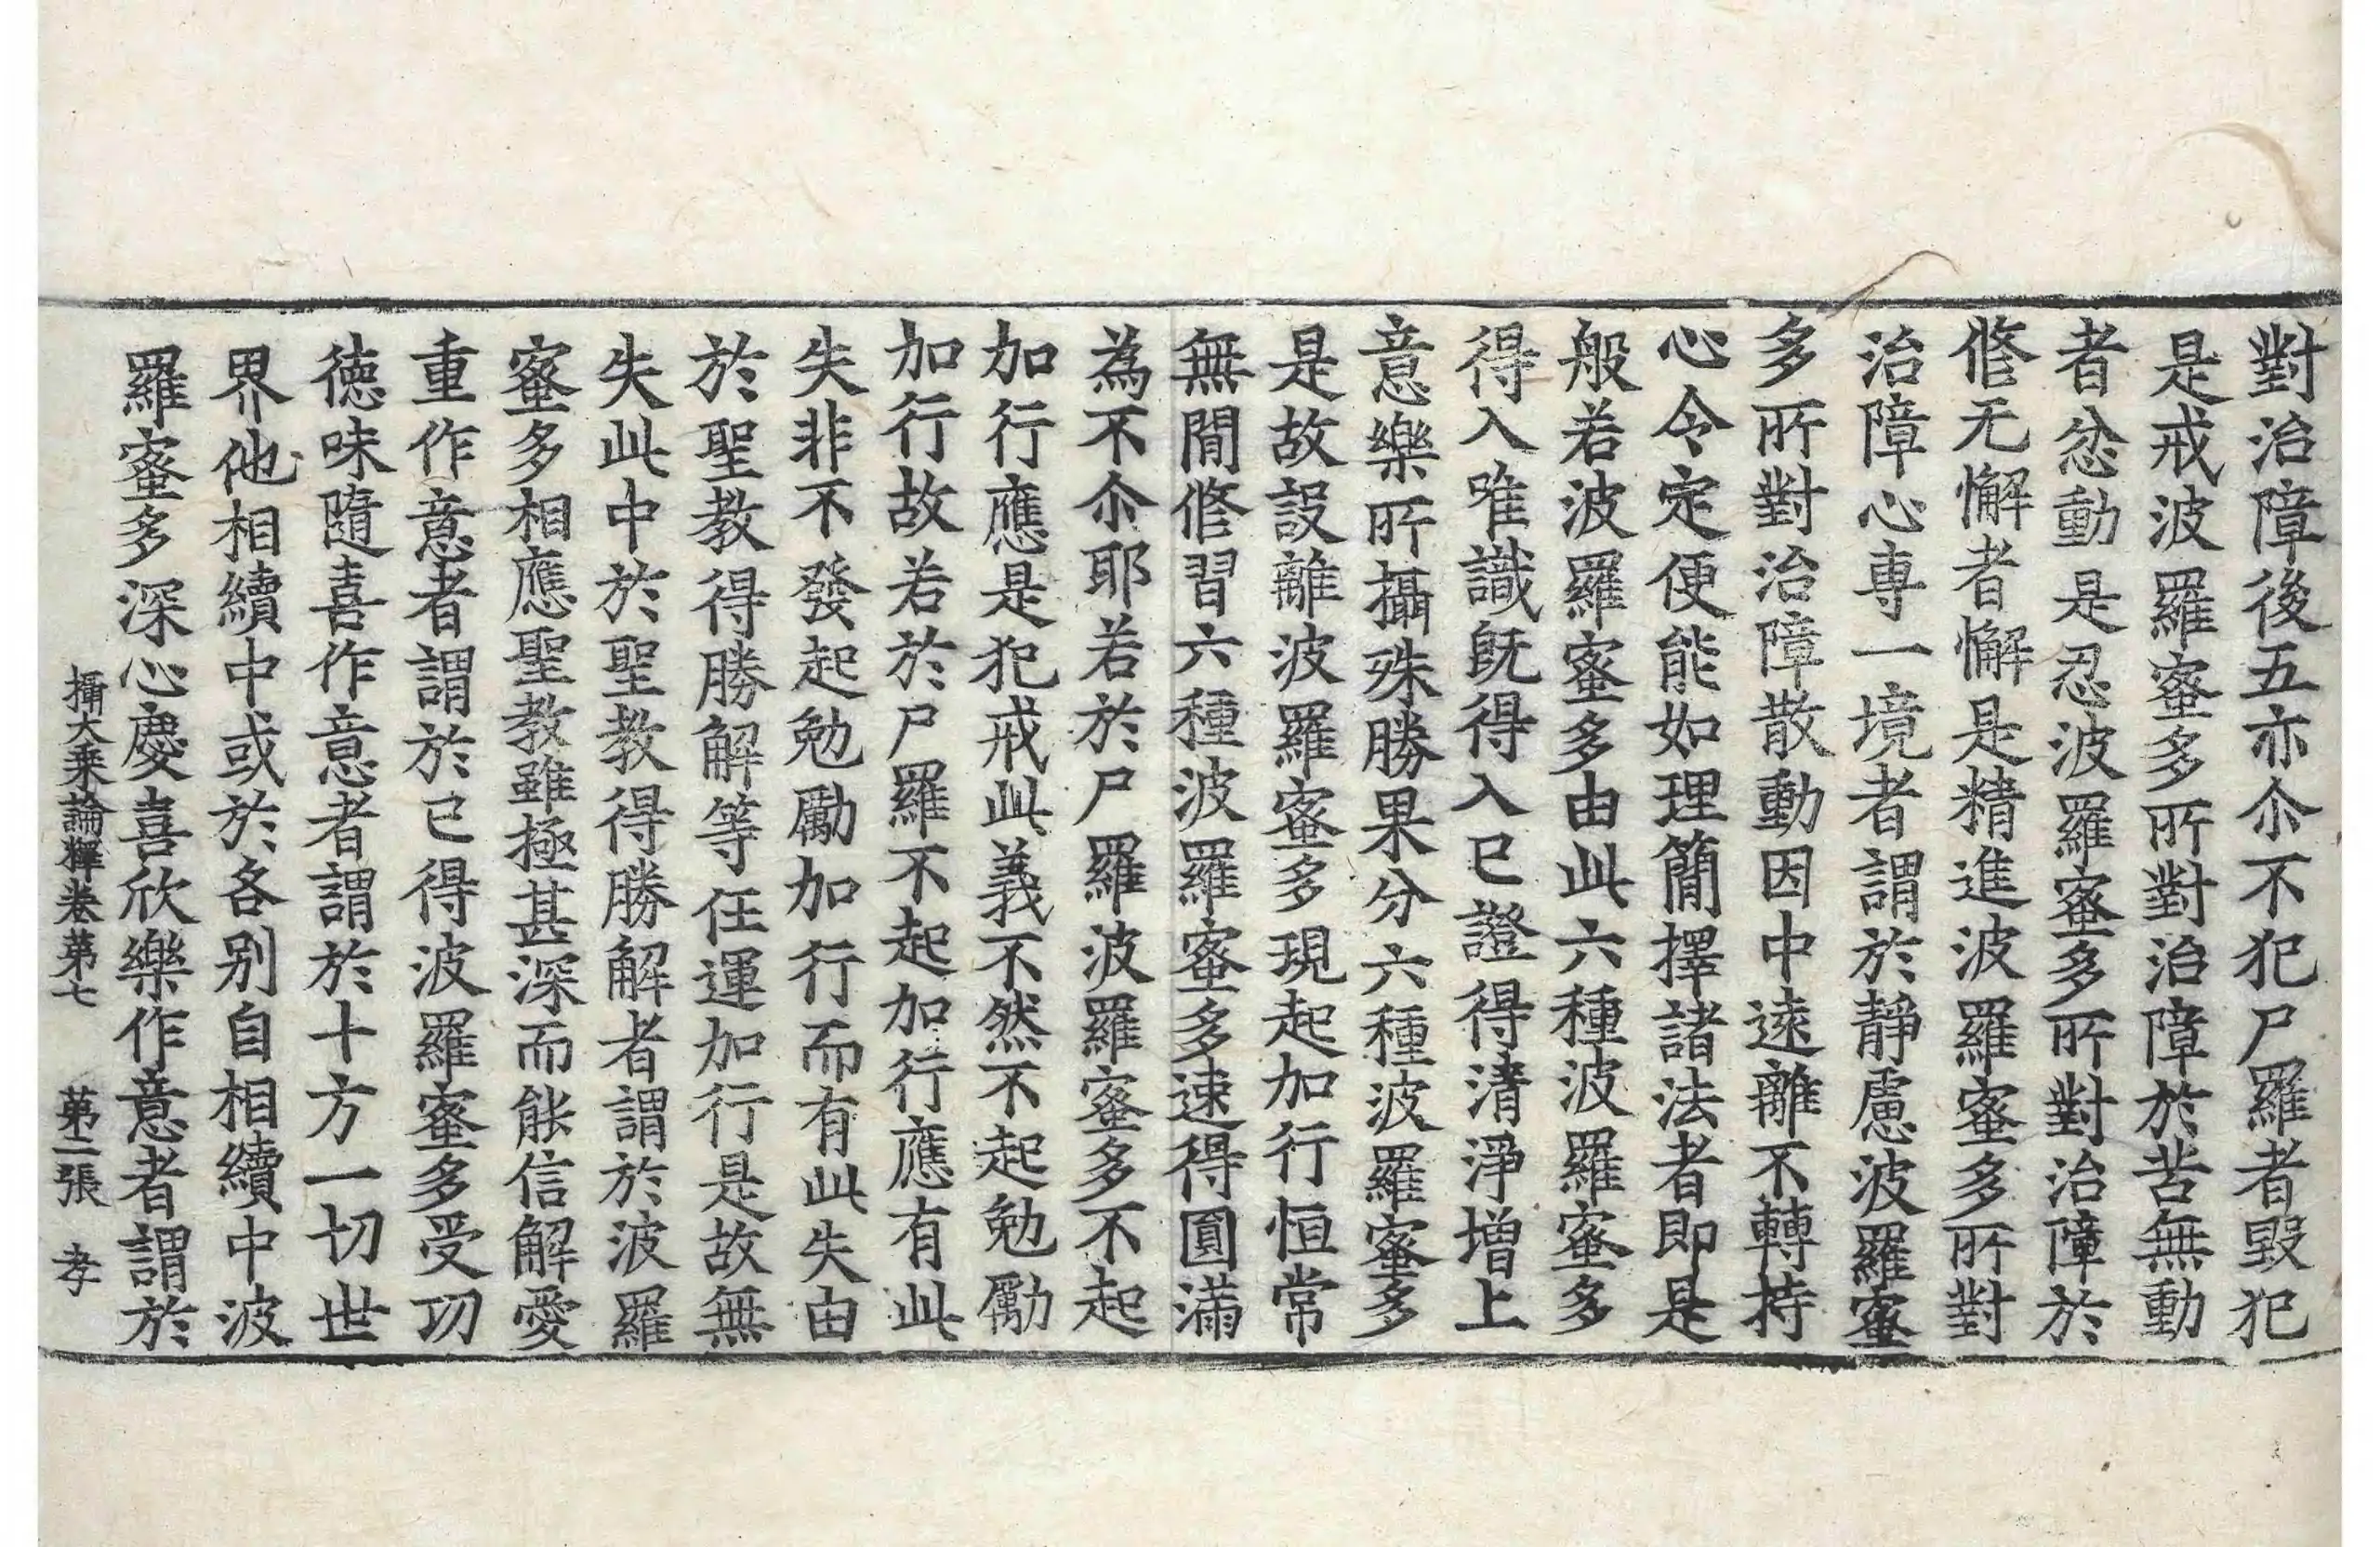 對治障後五亦尒不犯尸羅者毀犯
是戒波羅蜜多所對治障於苦無動
者忿動是忍波羅蜜多所對治障於
修无懈者懈是精進波羅蜜多所對
治障心専一境者謂於靜慮波羅蜜
多所對治障散動因中遠離不轉持
心令定便能如理簡擇諸法者即是
般若波羅蜜多由此六種波羅蜜多
得入唯識旣得入已證得清淨增上
意樂所攝殊勝果分六種波羅蜜多
是故設離波羅蜜多現起加行恒常
無間修習六種波羅蜜多速得圓滿
為不尒耶若於尸羅波羅蜜多不起
加行應是犯戒此義不然不起勉勵
加行故若於尸羅不起加行應有此
失非不發起勉勵加行而有此失由
於聖教得勝解等任運加行是故無
失此中於聖教得勝解者謂於波羅
蜜多相應聖教雖極甚深而能信解愛
重作意者謂於已得波羅蜜多受㓛
徳味隨喜作意者謂於十方一切世
界他相續中或於各别自相續中波
羅蜜多深心慶喜欣樂作意者謂於
攝大乘論釋卷第七 第二張 孝